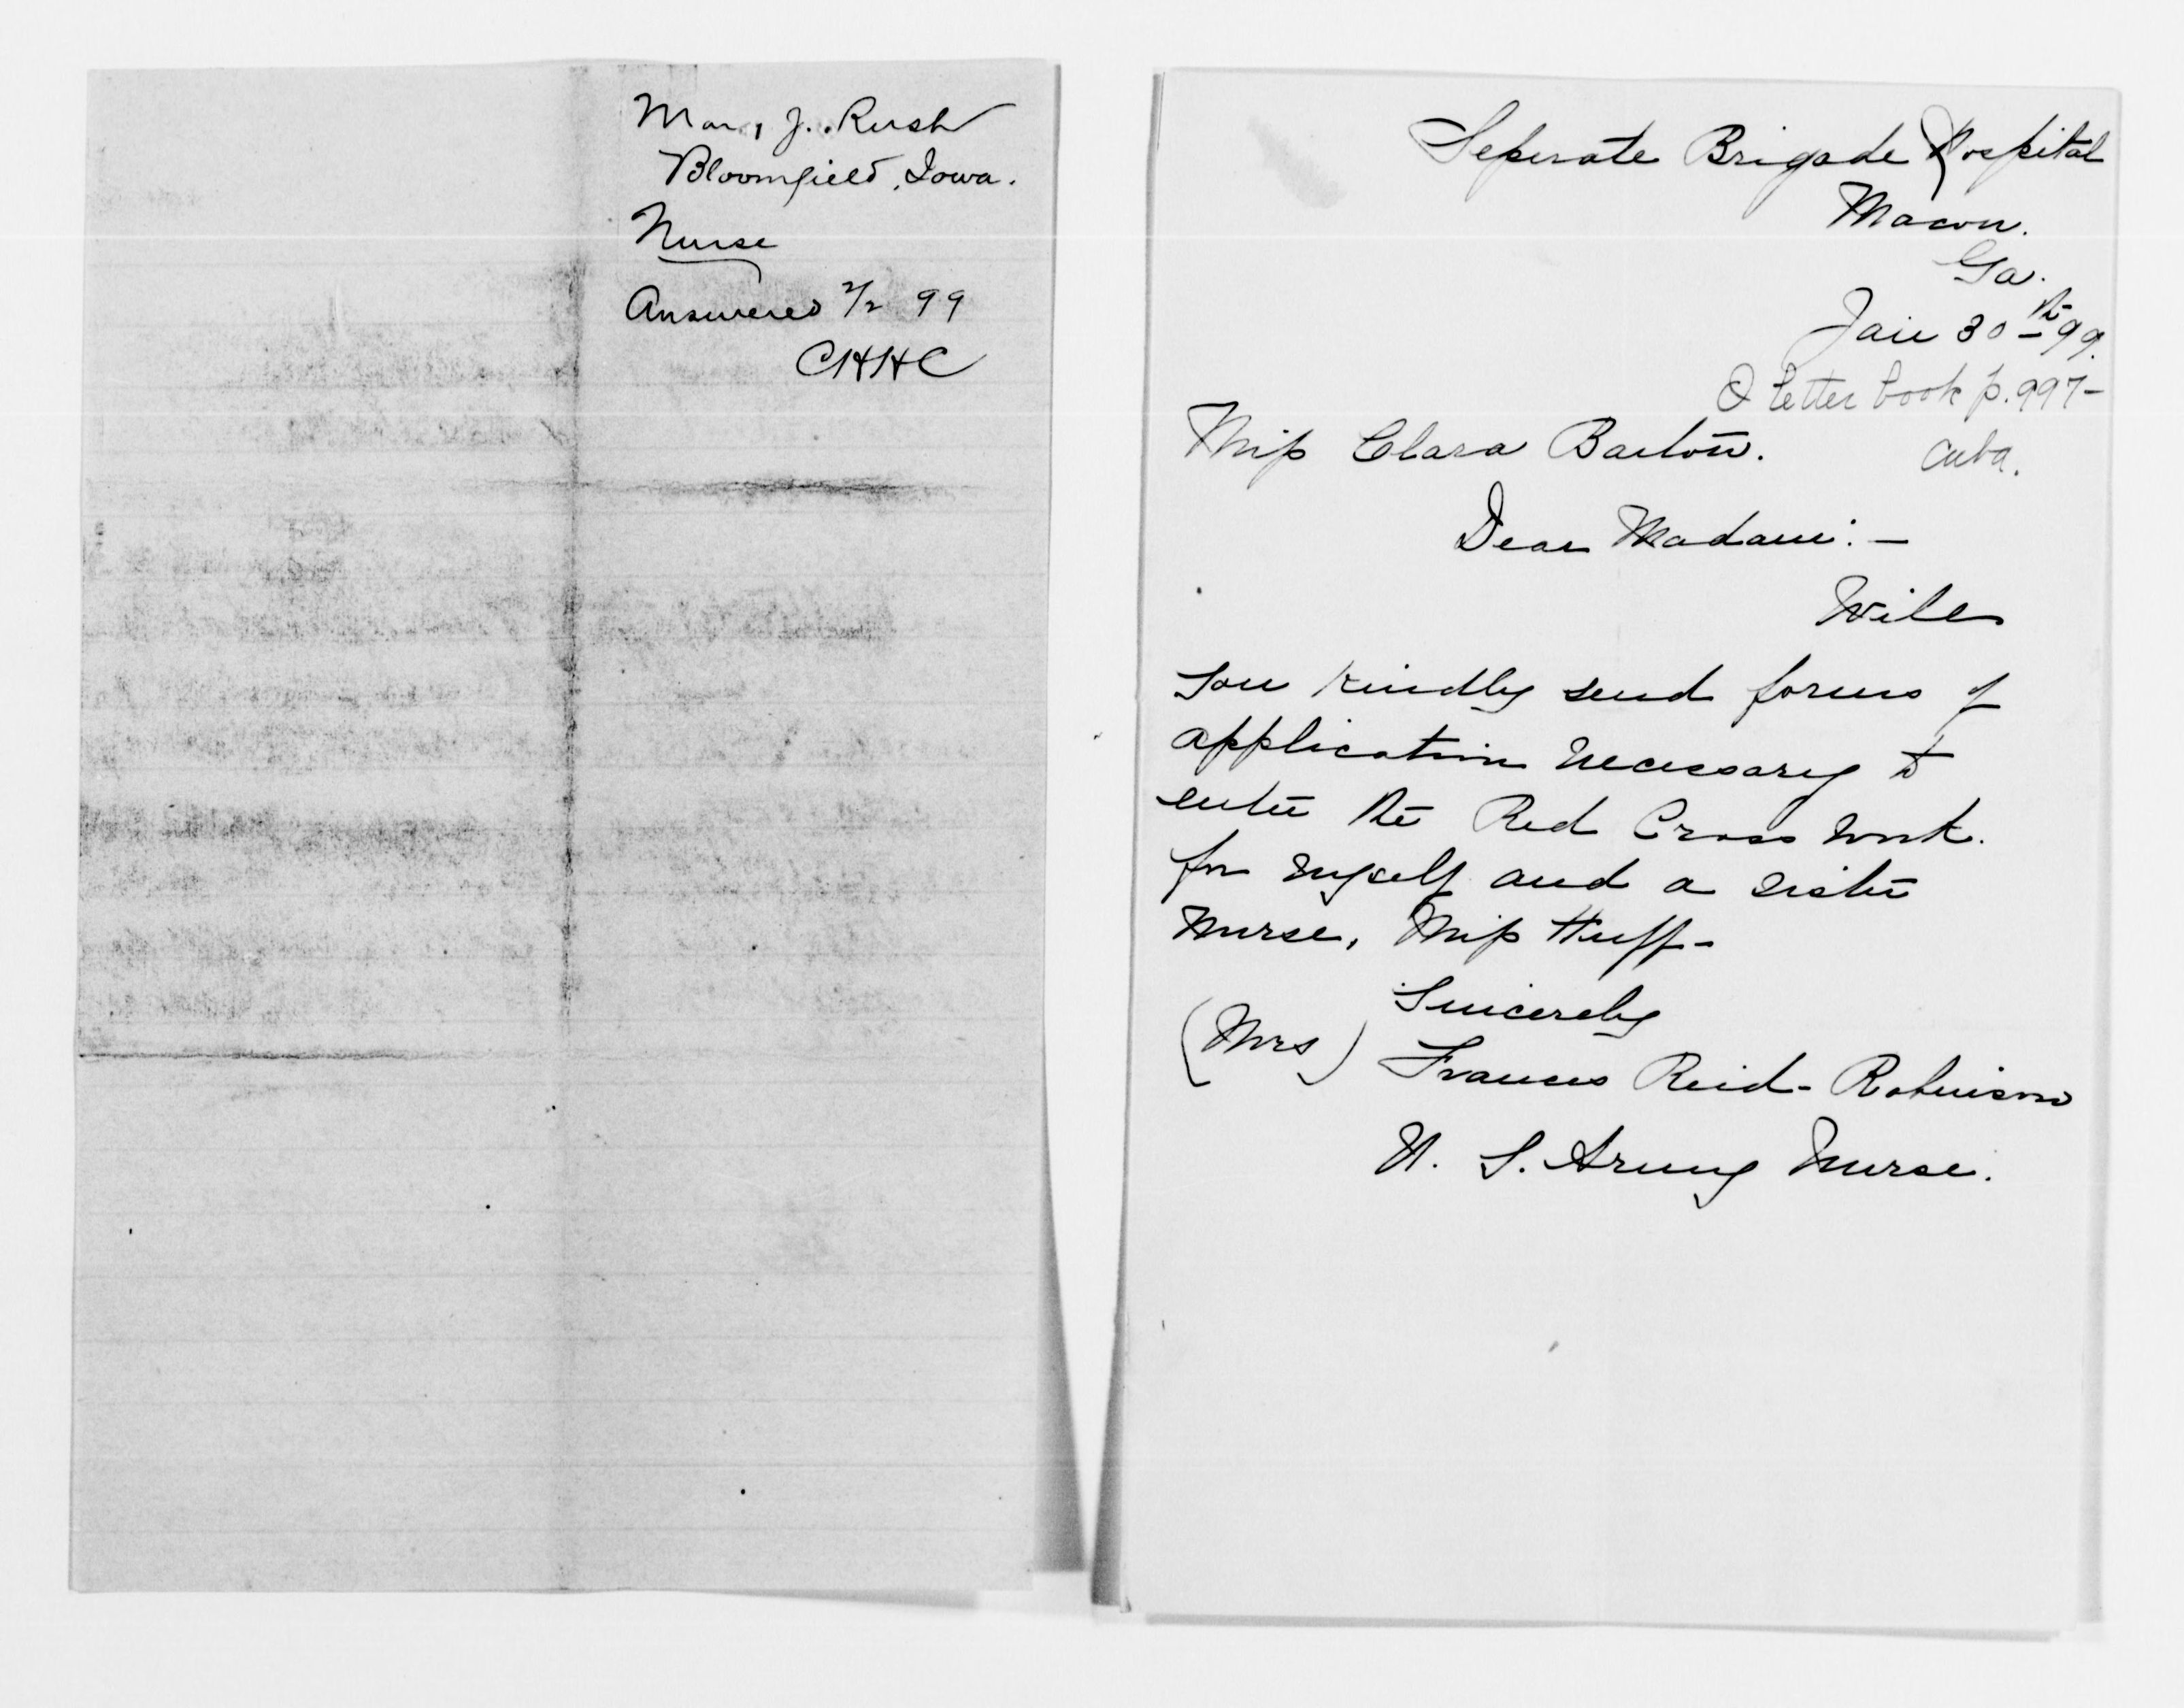 Mary J. Rush
Bloomfield, Iowa.
Nurse
Answered 2/2 99
CHHC
Seperate Brigade Hospital
Macon.
Ga.
Jan 30th 99.
letter book p. 997-
Cuba.
Miss Clara Barton.
Dear Madam: -
Will
you kindly send forms of
application necessary to
enter the Red Cross work.
for myself and a sister
nurse, Miss Huff-
Sincerely
(Mrs) Frances Reid-Robinson
U. S. Army Nurse.